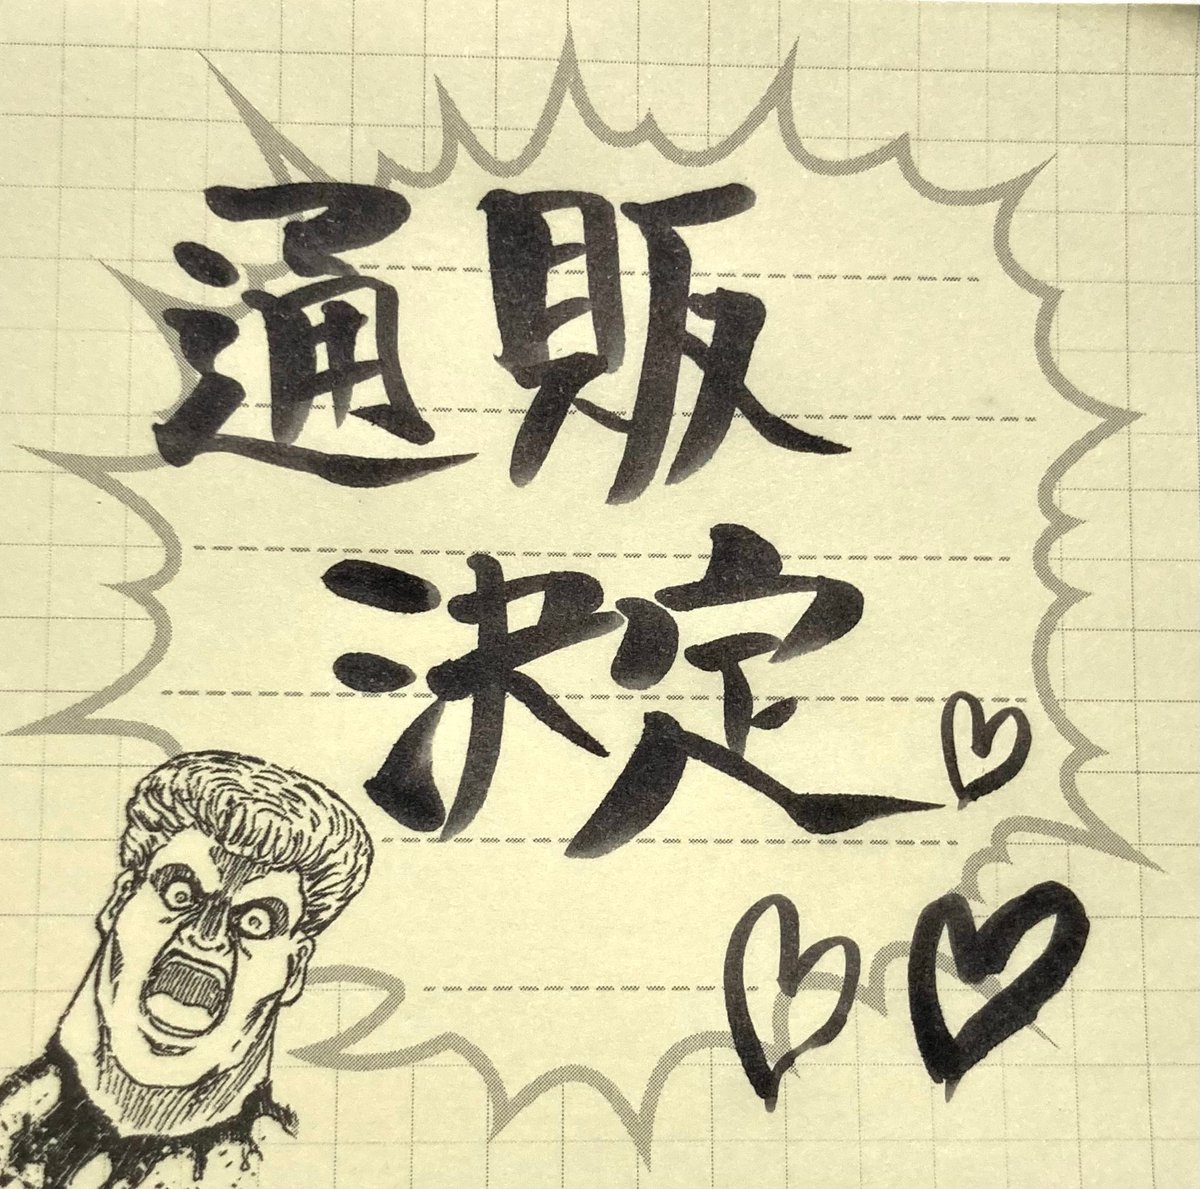 通販
決定♡
♡♡